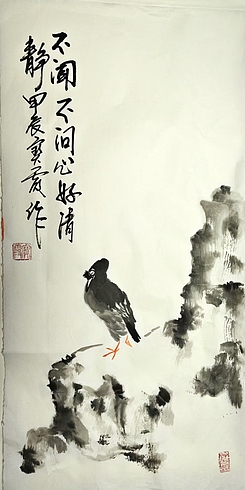 不闻不问心好清
静甲辰
作